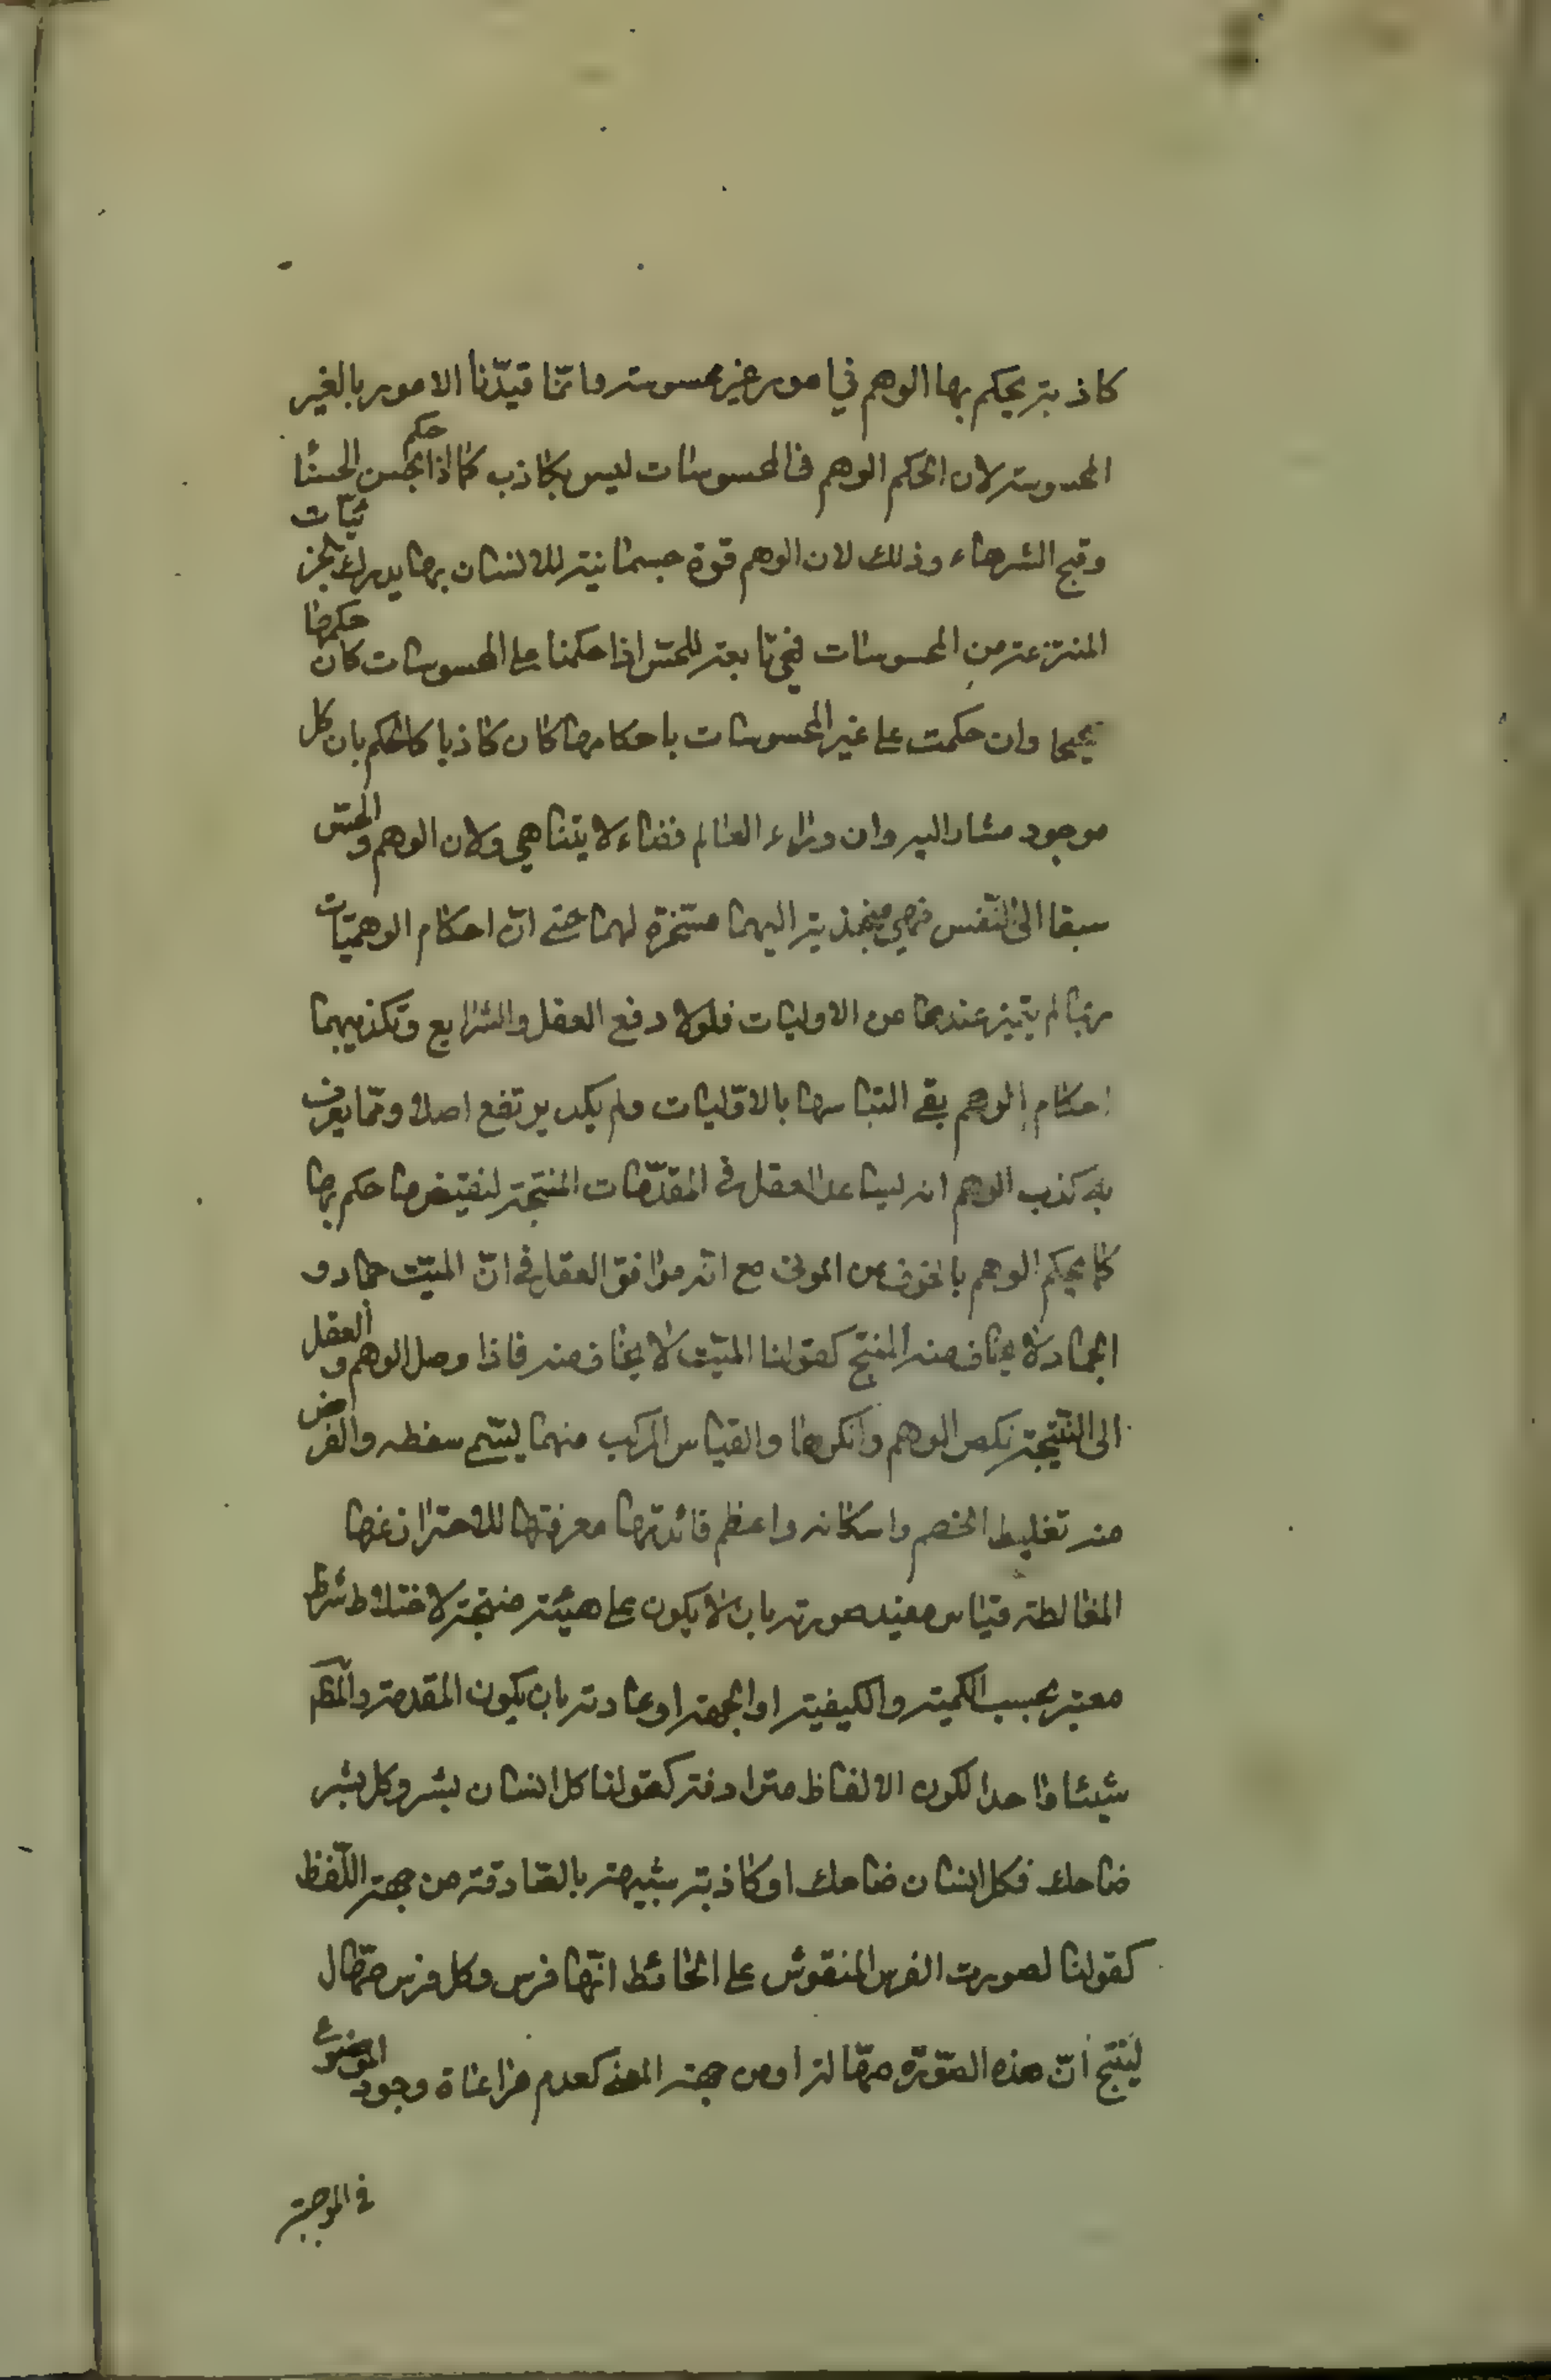 كاذبة يحكم بها الوهم في امور غير محسوسة وانّما قيّدنا الامور بالغير
المحسوسة لان الحكم الوهم في المحسوسات ليس بكاذب كما اذا حكم بحسن الحسنا
وقبح الشرهاء وذلك لان الوهم قوة جسمانية للانسان بها يدرك الجزئيّات
المنتزعة من المحسوسات فهي تابعة للحسّ اذا حكمنا على المحسوسات كان حكمها
صحيحا وان حكمت على غير المحسوسات باحكامها كان كاذبا كالحكم بان كل
موجود مشار اليه وان وراء العالم فضاء لا يتناهي ولان الوهم والحسّ
سبقا الى النّفس فهي منجذبة اليهما مسخّرة لهما حتى انّ احكام الوهميّات
ربّما لم يتميز عندها من الاوليات فلولا دفع العقل والشرايع وتكذيبهما
احكام الوهم بقي التباسها بالاوّليات ولم يكد يرتفع اصلا وممّا يعرف
به كذب الوهم انه يساعد العقل في المقدّمات المنتجة لنقيض ما حكم بها
كما يحكم الوهم بالخوف من الموتى مع انّه موافق العقل في انّ الميّت جماد و
الجماد لا يخاف منه المنتج كقولنا الميّت لا يخاف منه فاذا وصل الوهم والعقل
الى النّتيجة نكص الوهم وانكرها والقياس المركب منهما يسمّى سفسطه والغرض
منه تغليط الخصم واسكاته واعظم فائدتها معرفتها للاحتراز عنها
المغالطة قياس مفيد صورته بان لا يكون على هيئة منتجة لاختلاط شرط
معتبر بحسب الكمية والكيفية او الجهة او مادته بان يكون المقدمة والمط
شيئا واحدا لكون الالفاظ مترادفة كقولنا كل انسان بشر وكل بشر
ضاحك فكل انسان ضاحك او كاذبة شبيهة بالصادقة من جهة اللّفظ
كقولنا لصورت الفرس المنقوش على الحائط انّها فرس وكل فرس صهّال
لينتج انّ هذه الصّورة صهّالة او من جهة المعنى كعدم مراعاة وجود الموضوع
في الموجبة